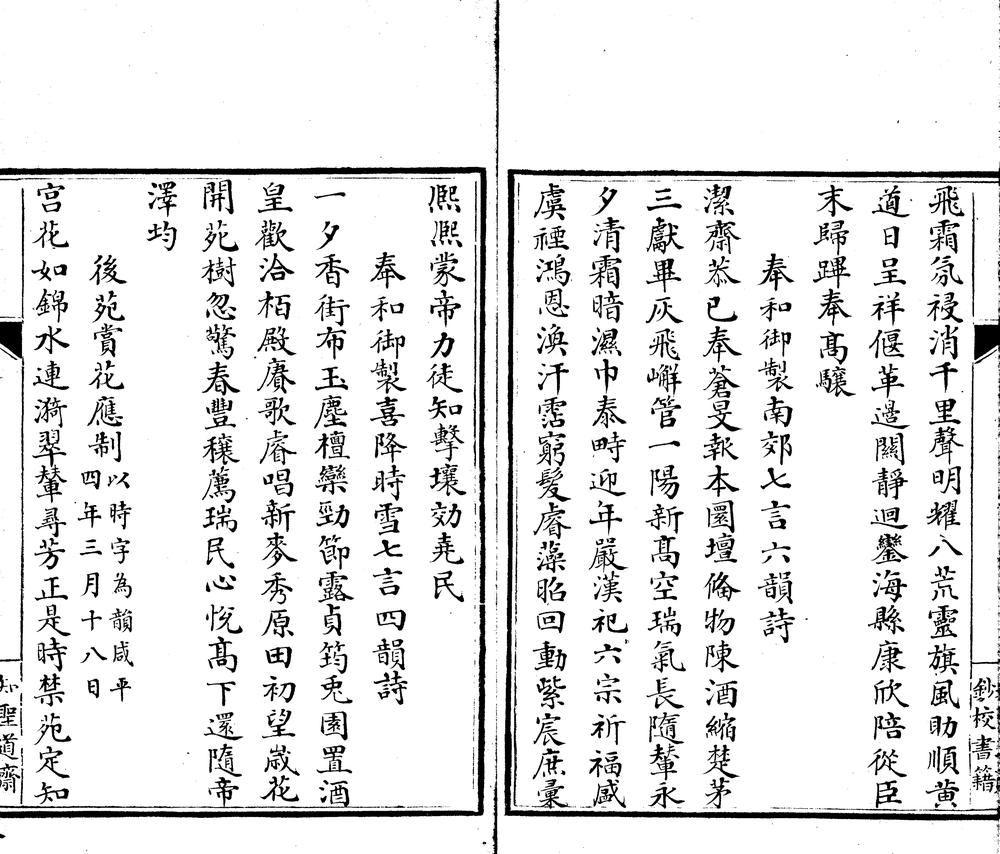 飛霜氛祲消千里聲明耀八荒靈旗風助順黄
道日呈祥偃革邉關靜迴鑾海縣康欣陪從臣
末歸蹕奉髙驤
奉和御製南郊七言六韻詩
潔齋恭已奉蒼旻報本圜壇偹物陳酒縮楚茅
三獻畢灰飛嶰管一陽新髙空瑞氣長隨輦永
夕清霜暗濕巾泰畤迎年嚴漢祀六宗祈福感
虞禋鴻恩渙汗霑窮髮睿藻昭回動紫宸庶彙
熈熈蒙帝力徒知擊壤効堯民
奉和御製喜降時雪七言四韻詩
一夕香街布玉塵檀欒勁節露貞筠兎園置酒
皇歡洽栢殿賡歌睿唱新麥秀原田初望嵗花
開苑樹忽驚春豐穰薦瑞民心恱髙下還隨帝
澤均
後苑賞花應制以時字為韻咸平
四年三月十八日
宫花如錦水連漪翠輦尋芳正是時禁苑定知
鈔校書籍
知聖道齋